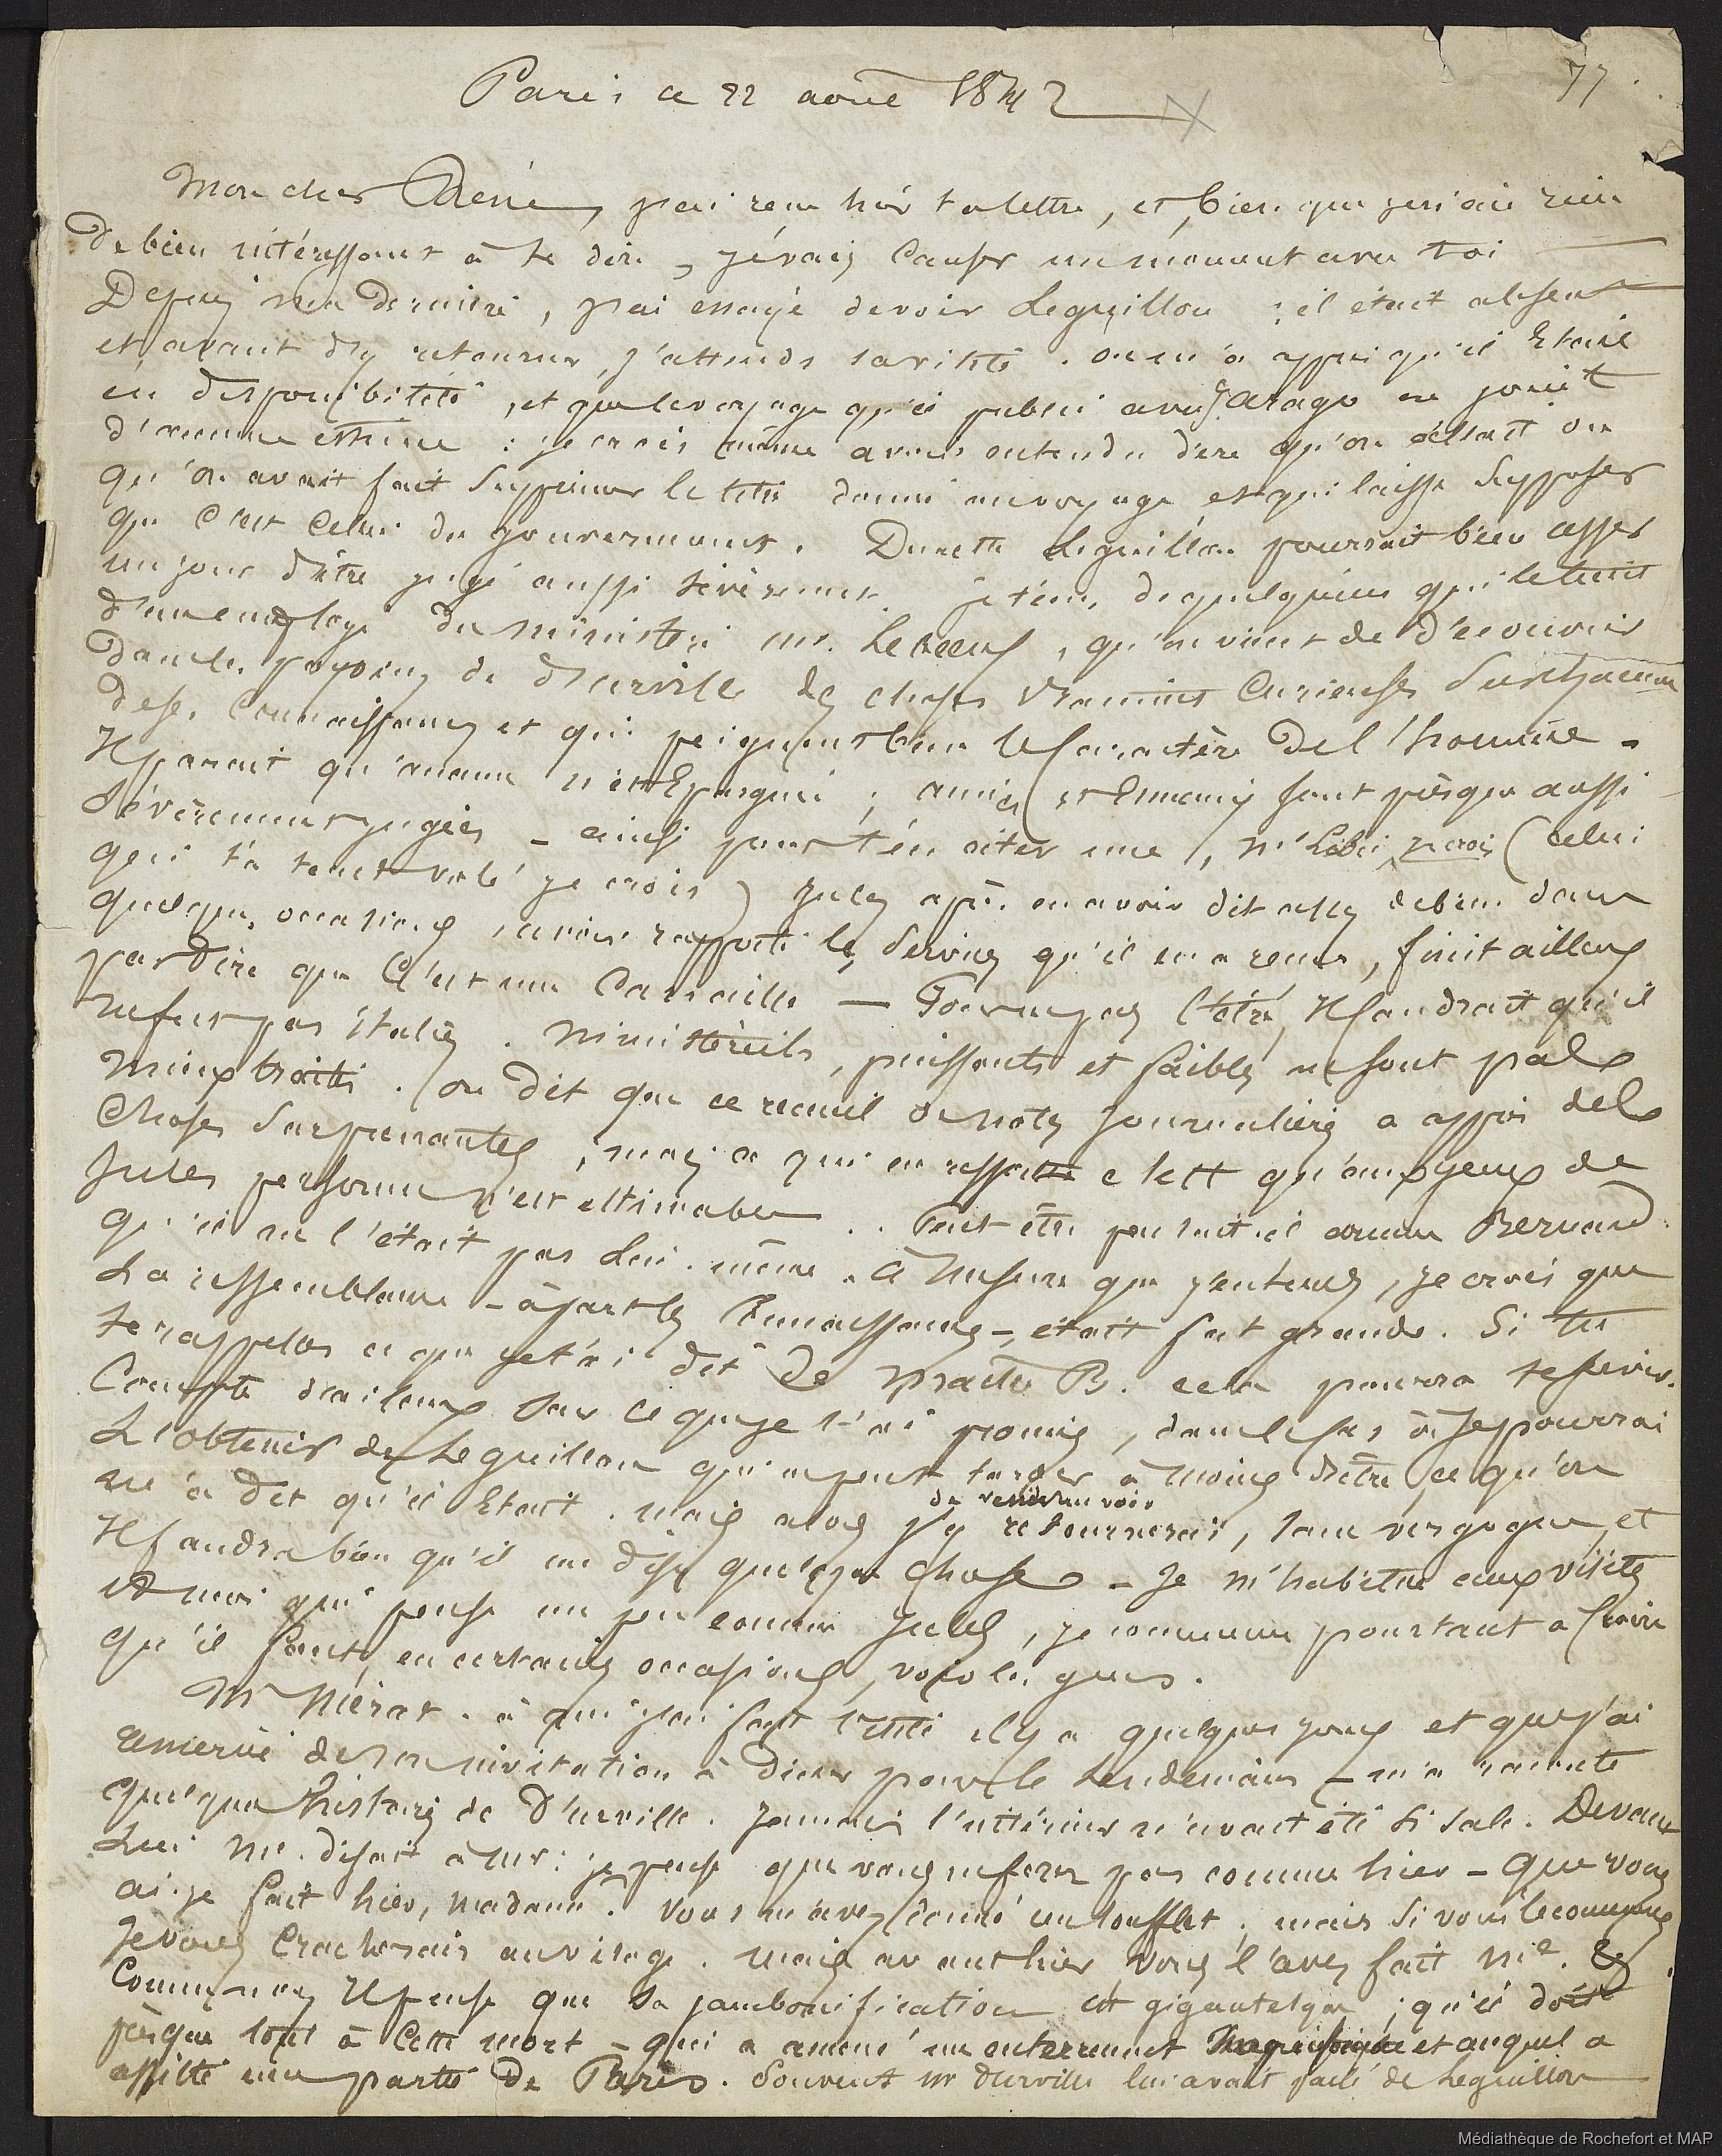 77
Paris ce 22 août 1842
Mon cher René, j'ai reçu hier ta lettre, et bien que je n'aie rien
de bien intéressant à te dire, je vais causer un moment avec toi
Depuis ma dernière, j'ai essayé de voir Leguillou ; il était absent
et avant d'y retourner, j'attends sa visite. on m'a appris qu'il Etait
en disponibilité, et que le voyage qu'il publie avec J. Arago ne jouit
d'aucune estime : je crois même avoir entendu dire qu'on allait ou
qu'on avait fait supprimer le titre donné au voyage et qui laisse supposer
que c'est celui du gouvernement. Du reste Leguillou pourrait bien cesser
un jour d'être jugé aussi sévèrement. je tiens, de quelqu'un qui le tenait
d'un employé du ministère mr. Leboeuf, qu'on vient de découvrir
dans les papiers de d'urville des choses vraiment curieuses sur chacune
de ses connaissances et qui peignent bien le caractère de l'homme.
Il parait qu'aucun n'est Epargné ; amis et Ennemis sont presque aussi
sévèrement jugés - ainsi pour t'en citer une, (celui
qui t'a tant volé je crois) Jules après en avoir dit assez de bien dans
quelques occasions, avoir rapporté les services qu'il en a reçus, finit ailleurs
par dire que c'est une Canaille — Pour ne pas l'être, Il faudrait qu'il
ne fut pas italien. Ministériels, puissants et faibles ne sont pas
mieux traités. on dit que ce recueil de notes journalières a appris des
choses surprenantes, mais ce qui en ressort c'est qu'aux yeux de
Jules personne n'est estimable. . Peut être pensait-il comme Bernard
qu'il ne l'était pas lui-même. à mesure que j'entends, je crois que
la ressemblance - à part les Connaissances -, était fort grande. Si tu
te rappelles ce que je t'ai dit de maître B. cela pourra te servir.
Compte d'ailleurs sur ce que je t'ai promis, dans le cas où je pourrai
L'obtenir de Leguillou qui ne peut tarder à moins d'être, ce qu'on
de venir me voir
m'a dit qu'il Etait. mais alors j'y retournerai, sans vergogne, et
Il faudra bien qu'il me dise quelque chose - Je m'habitue aux visites
et moi qui pense un peu comme Jules, je commence pourtant à croire
qu'il faut, en certaines occasions, voir les gens.
Mr Mérat. à qui j'ai fait visite il y a quelques jours et que j'ai
remercié de son invitation à diner pour le Lendemain - m'a raconté
quelques histoires de D'urville. Jamais l'intérieur n'avait été si sale. Devant
Lui Me. disait à mr : je pense que vous ne ferez pas comme hier - Que vous
ai-je fait hier, madame. Vous m'avez donné un soufflet ; mais si vous recommencez
Je vous cracherais au visage. mais avant hier vous l'avez fait Me.
Il pense que sa jambonification est gigantesque ; qu'il doit
presque tout à Cette mort - qui a amené un enterrement magnifique et auquel a
assisté une partie de Paris. Souvent mr durville lui avait parlé de Leguillou
Médiathèque de Rochefort et MAP